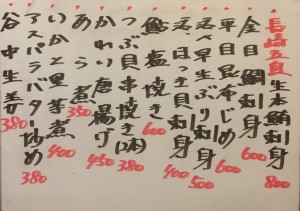 長崎五島 生本鮪刺身 800
金目鯛刺身 600
平目昆布じめ 600
活〆早生ぶり刺身 500
活白つき貝刺身 400
鮎塩焼き 600
つぶ貝串焼き(2本) 380
かれい唐揚げ 450
あら煮 350
いかと里芋煮 400
アスパラバター炒め 380
谷中生姜 380